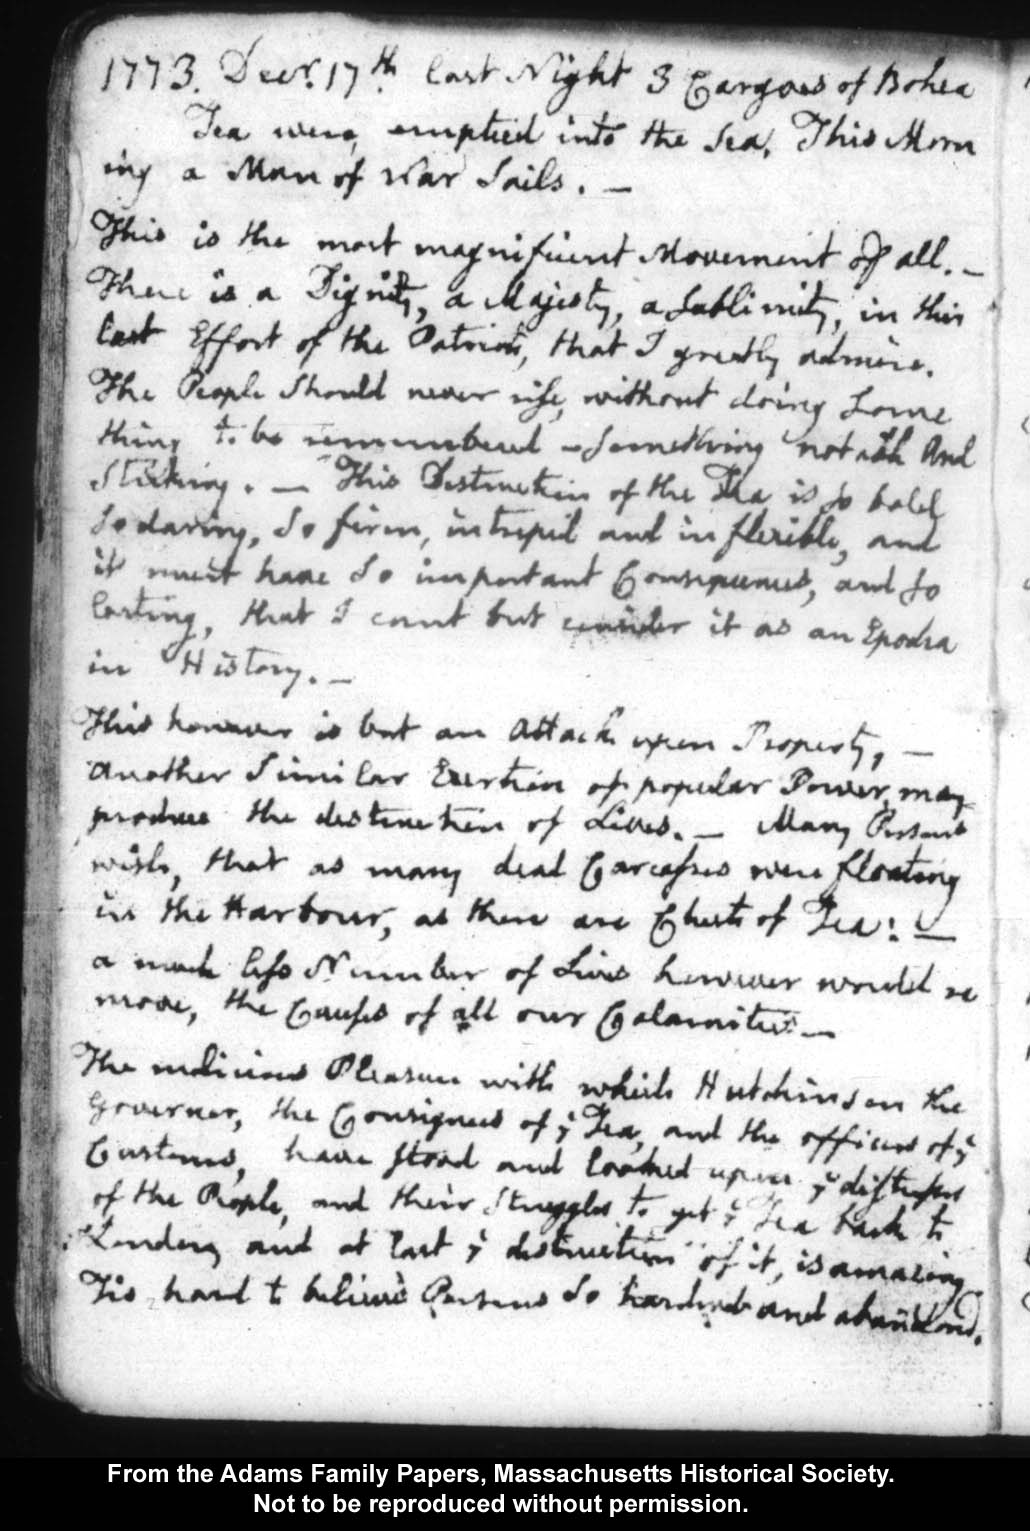 1773. Decr. 17th. Last Night 3 Cargoes of Bohea
Tea were emptied into the Sea. This Morn
ing a Man of War Sails. —
This is the most magnificent Movement of all. —
There is a Dignity, a Majesty, a Sublimity, in this
last Effort of the Patriots, that I greatly admire.
The People should never rise, without doing some
thing to be remembered — something notable And
striking. — This Destruction of the Tea is so bold
so daring, so firm, intrepid and inflexible, and
it must have so important Consequences, and so
lasting, that I cant but consider it as an Epocha
in History. —
This however is but an Attack upon Property, —
Another similar Exertion of popular Power, may
produce the destruction of Lives. — Many Persons
wish, that as many dead Carcasses were floating
in the Harbour, as there are Chests of Tea: —
a much less Number of Lives however would re
move, the Causes of all our Calamities. —
The malicious Pleasure with which Hutchinson the
Governor, the Consignees of ye Tea, and the officers of ye
Customs, have stood and looked upon ye distresses
of the People, and their Struggles to get ye Tea back to
London, and at last ye destruction of it, is amazing.
Tis hard to believe Persons so hardened and abandoned.
From the Adams Family Papers, Massachusetts Historical Society.
Not to be reproduced without permission.